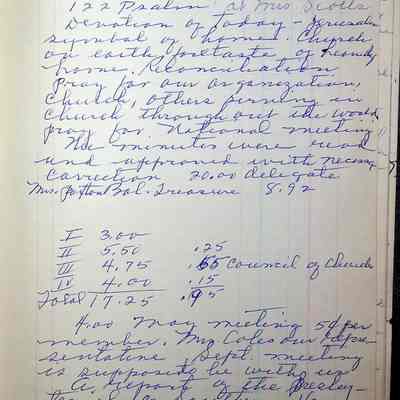 122 Psalm at Mrs Scotts
Devotion of Today - Jerusalem
symbol of home. Church
on earth, foretaste of heavenly
home. Reconciliation.
Pray for our organization,
Church, others serving in
Church through out the world,
pray for National meeting
The minutes were read
and approved with necessary
correction 20.00 delegate
Mrs. Bal. Treasure 8.92
I 3.00
II 5.50 .25
III 4.75 .55 Council of Church
IV 4.00 .15
Total 17.25 .95
4.00 May meeting 5¢ per
member. Mrs Coles our repre-
sentative, Sept. meeting
is suppose to be with us
A report of the Presby-